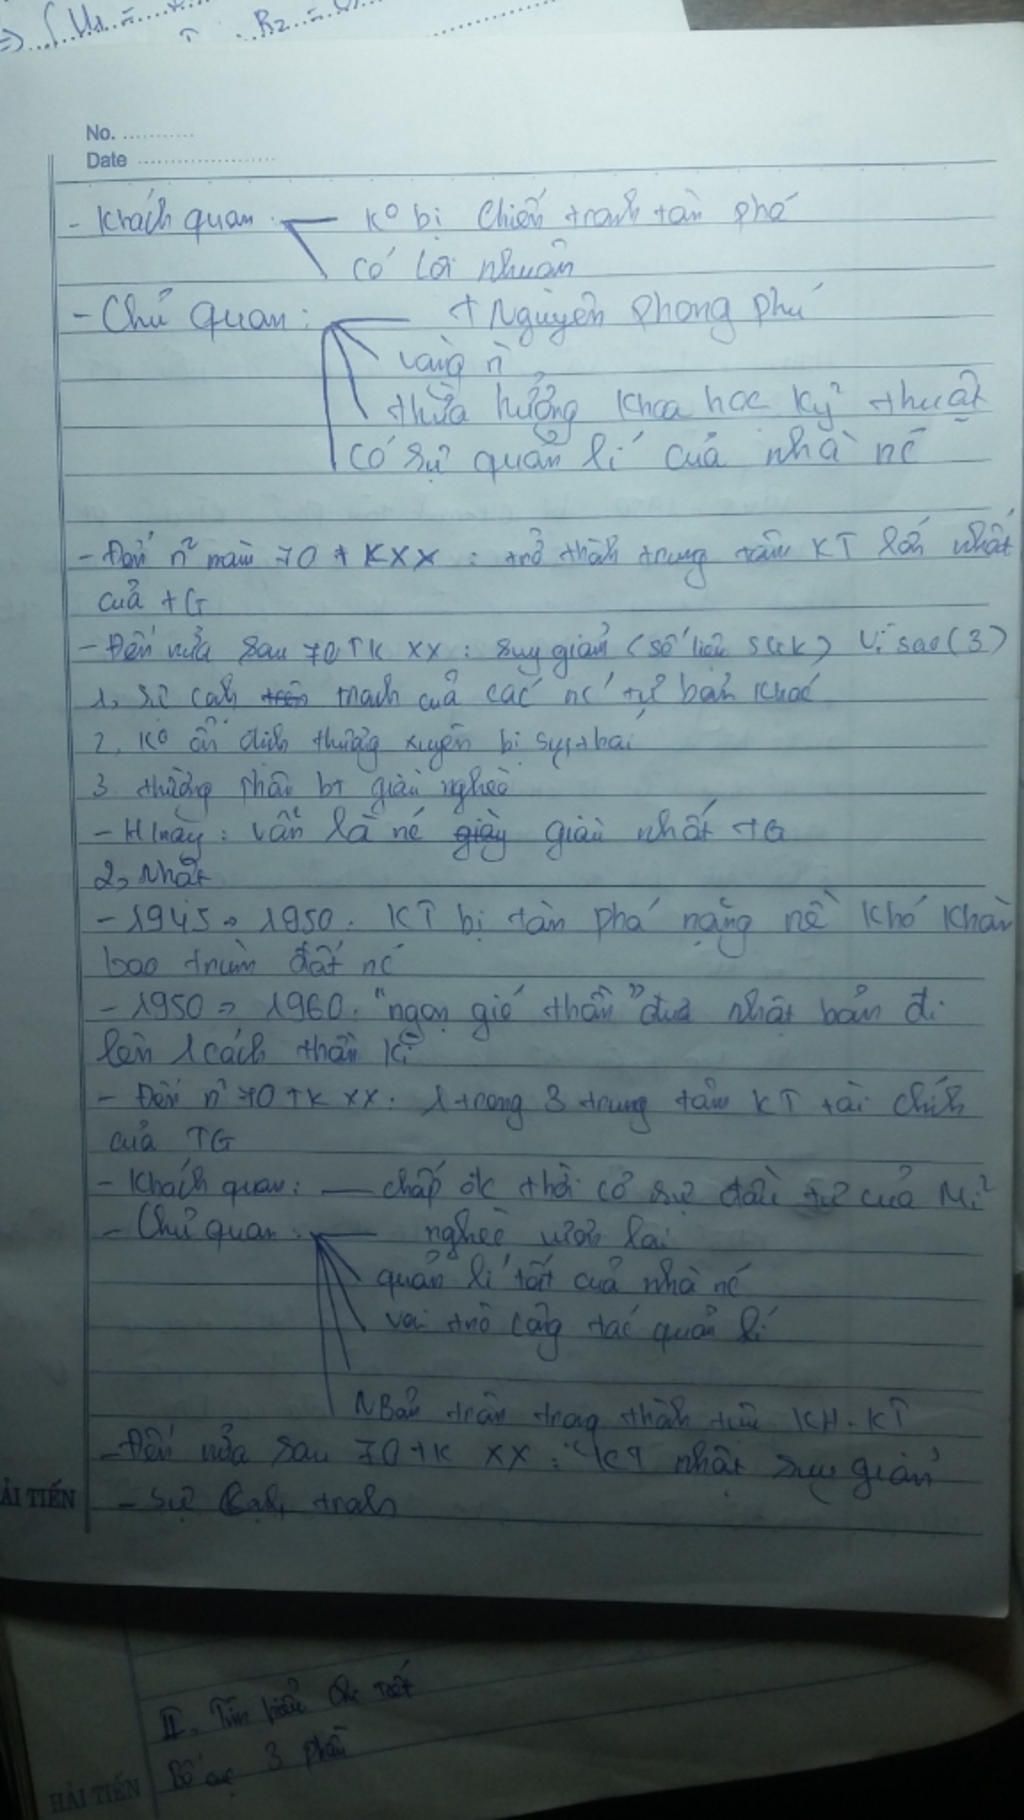 No. ...........
Date ......................
- Khách quan : Ko bị chiến tranh tàn phá
có lợi nhuận
- Chủ quan : + Nguyên phong phú
thừa hưởng khoa học kỹ thuật
có sự quản lí của nhà nc
- Đến n² năm 70 tK XX : trở thành trung tâm KT lớn nhất
của tG
- Đến nửa sau 70 TK XX : suy giảm (số liệu SGK) Vì sao (3)
1, sự cạh trah của các nc tư bản khác
2, Ko ổn định thường xuyên bị suy thoái
3 giàu nghèo
- H nay : vẫn là nc giàu nhất tG
2, Nhật
- 1945 → 1950 . KT bị tàn phá nặng nề khó khăn
bao trùm đất nc
- 1950 → 1960 . "ngọn gió thần" đưa nhật bản đi
lên 1 cách thần kì
- Đến n² 70 TK XX . 1 trong 3 trung tâm KT tài chính
của TG
- Khách quan : chớp đc thời cơ sự đầu tư của Mĩ
- Chủ quan : nghèo vươn lại
quản lí tốt của nhà nc
vai trò công tác quản lí
NBản trân trọng thành tựu KH-KT
- Đến nửa sau 70 tK XX : KT nhật suy giảm
- Sự cạh trah
ẢI TIẾN
II. Tìm hiểu chi tiết
Bố cục 3 phần
HẢI TIẾN